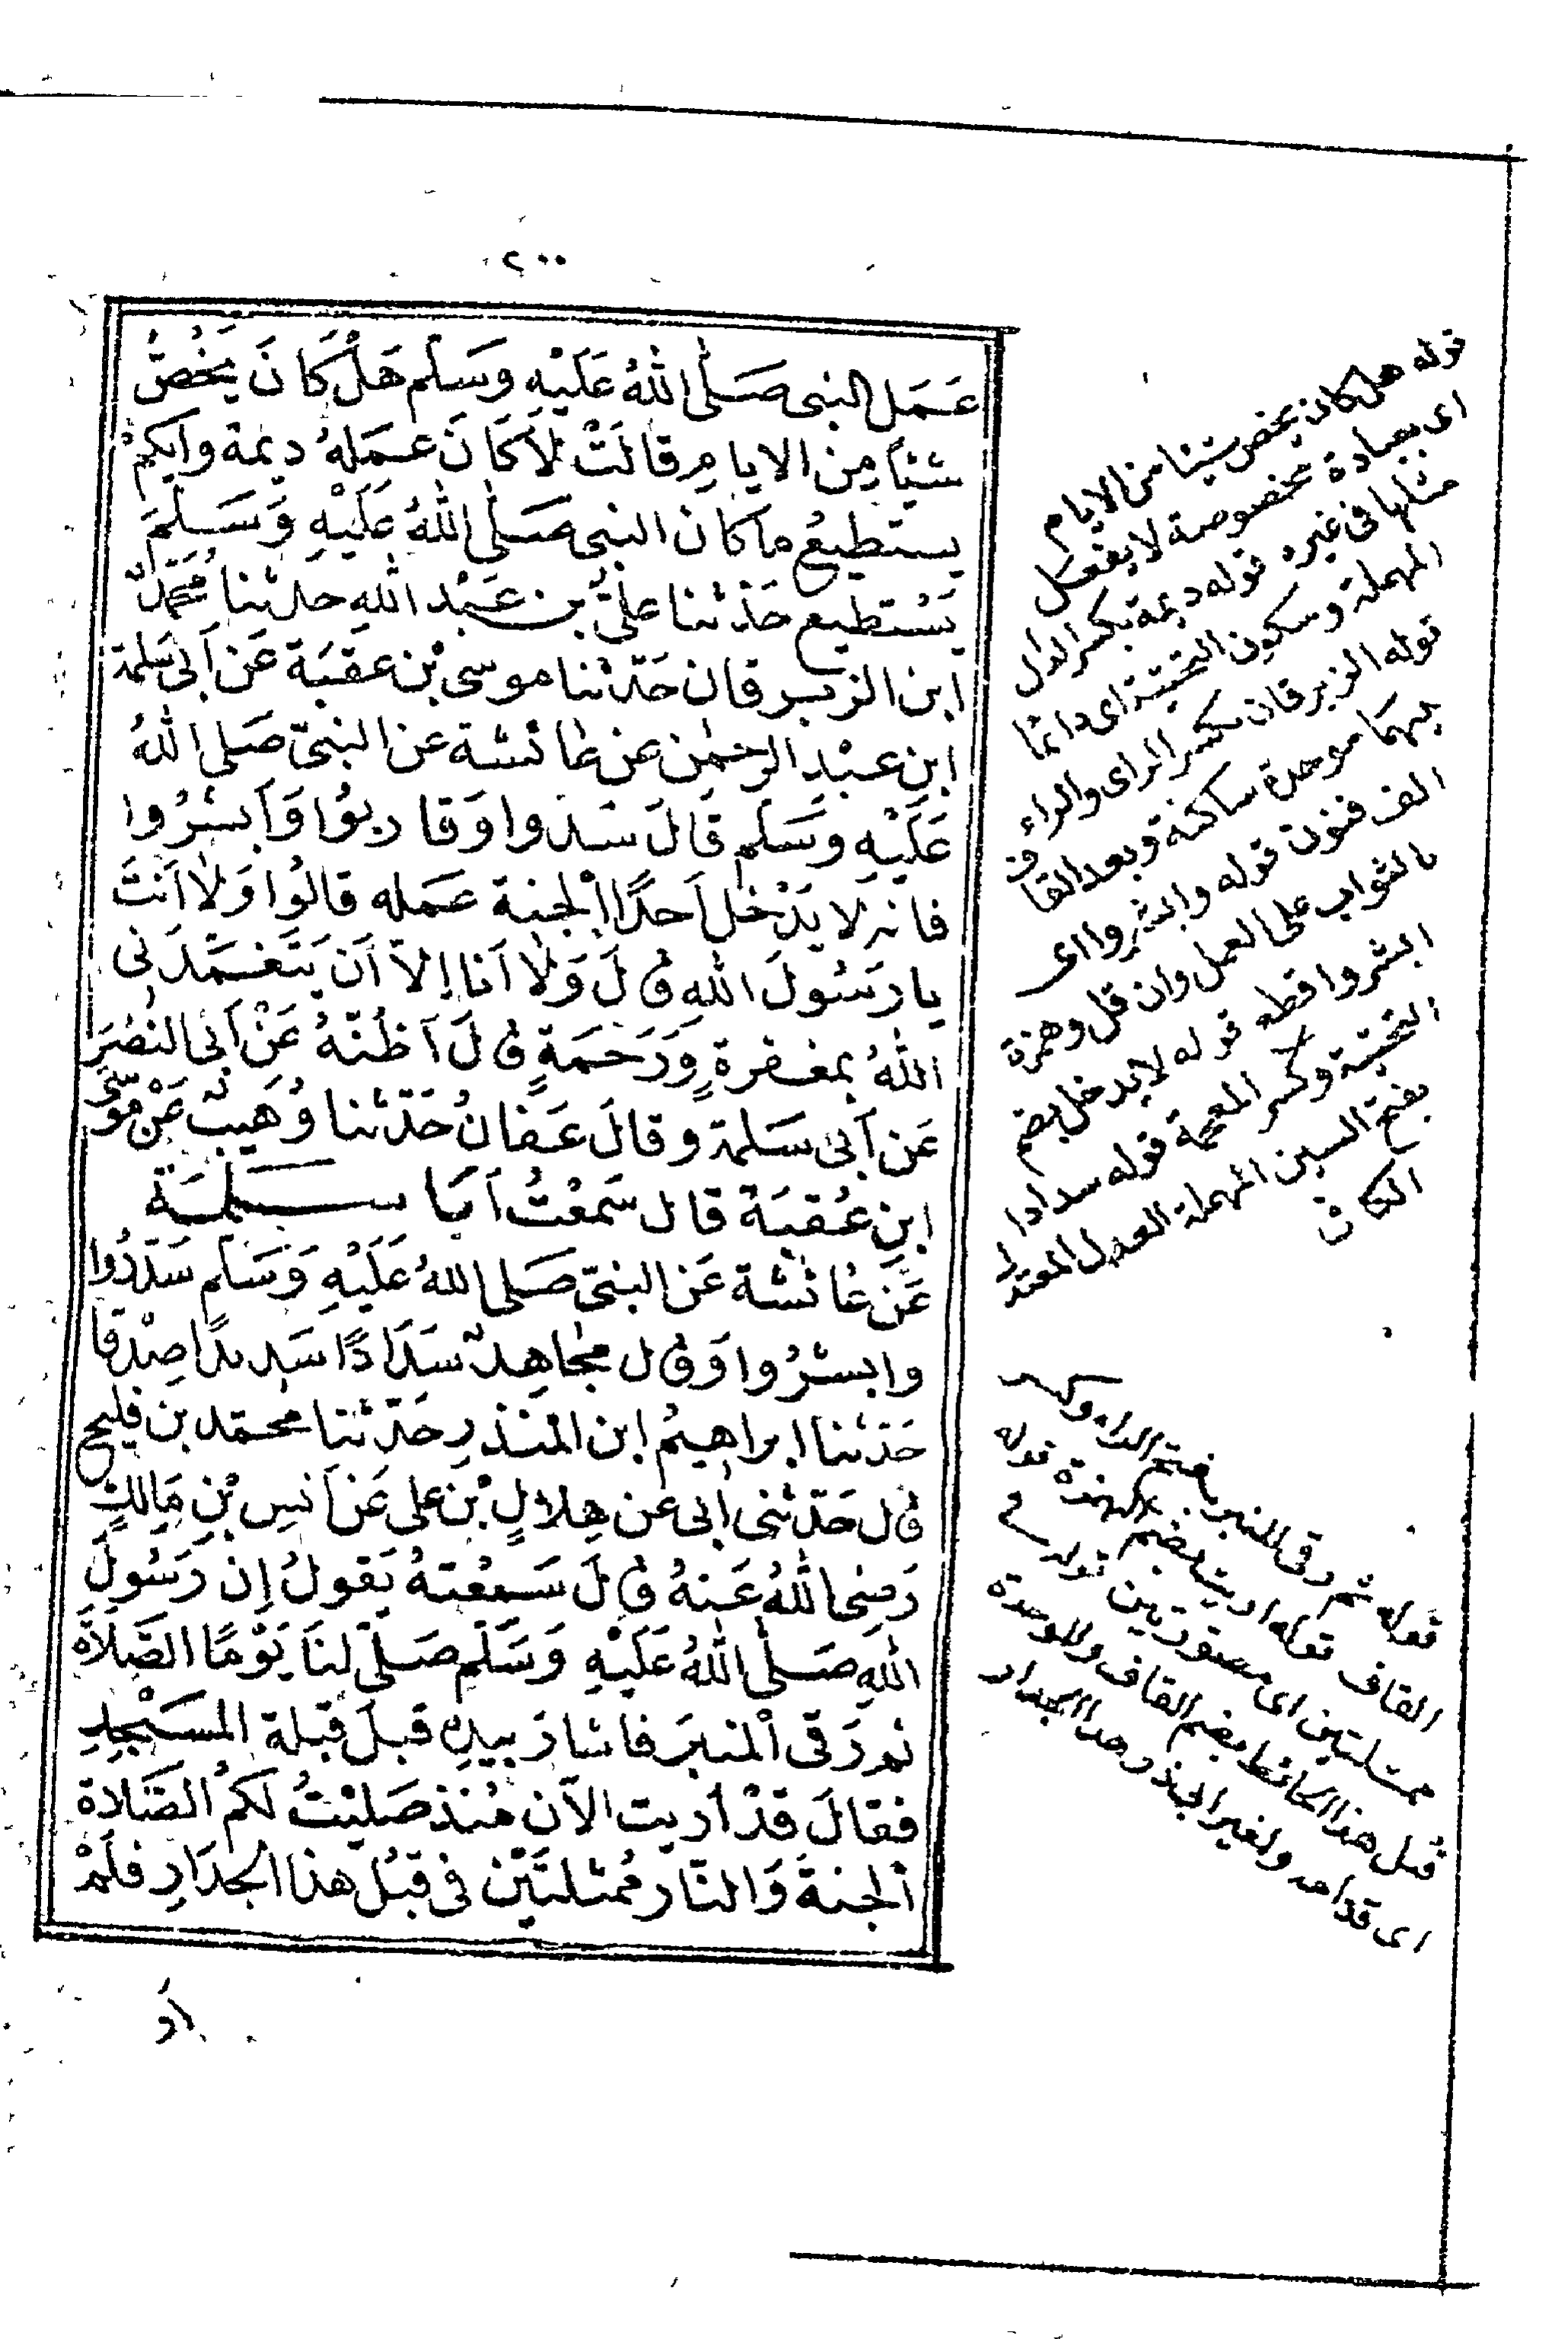 ٢٠٠
عَمَل النبى صَلَّى اللهُ عَلَيْهِ وَسَلَّم هَلْ كَانَ يَخُصُّ
شيْئاً مِن الايامِ قالَتْ لاَ كَانَ عمَلهُ ديمَة وايكمْ
يستطيعُ ما كان النبى صَلَّى اللهُ عَلَيْهِ وَسَلَّمَ
يَسْتطيع حَدثنا علىُّ بن عَبْد اللهِ حدثنا مُحَمَّدُ
ابن الزبرقان حَدّثنا موسى بْن عقبَة عَن اَبى سَلمة
ابن عبْدِ الرحمٰن عن عائشة عن النبىّ صَلى اللهُ
عَلَيْهِ وَسَلم قَالَ سَددوا وَقاربُوا وَاَبشرُوا
فانه لا يَدْخل اَحدًا الْجنة عمَله قالُوا وَلا اَنتَ
يا رَسُولَ اللهِ قالَ وَلا اَنا إلاّ اَن يَتَغَمَّدَنى
اللهُ بمغفرة وَرَحمَةٍ قالَ اَظنّهُ عَنْ اَبى النضْرِ
عَن اَبى سَلمة وقالَ عَفانُ حَدّثنا وُهَيبٌ عَنْ موسَى
ابنِ عُقبَة قال سَمعْتُ اَبَا سَلمَة
عَن عَائشة عَن النبىّ صَلى اللهُ عَلَيْهِ وَسَلم سَدّدُوا
وابشرُوا وَقال مجَاهِدٌ سَدَادًا سَديدًا صِدْقا
حَدثنا ابراهيمُ ابن المنذرِ حَدّثنا محمّد بن فليح
قال حَدّثنى اَبى عن هِلالِ بْن على عَن اَنسِ بْنِ مَالِكٍ
رَضِىَ اللهُ عَنهُ قالَ سَمعْتهُ يَقولُ اِن رَسُولَ
اللهِ صَلَّى اللهُ عَلَيْهِ وَسَلَّم صَلّى لنَا يَوْمًا الصَّلاَة
ثم رَقى المنبَر فاشارَ بيدِهِ قبلَ قبلة المسَجْدِ
فقالَ قَدْ اُريت الآن مُنذ صَليْتُ لكم الصَّلاة
الْجنةَ وَالنّار مُمثلتَيْن فى قبُل هذا الجدَارِ فلَمْ
أرَ
قوله هل كان يخص شيئا من الايام
اى بعبادة مخصوصة لا يفعل
مثلها فى غيره قوله ديمة بكسر الدال
المهملة وسكون التحتية اى دائما
قوله الزبرقان بكسر الزاى والراء
بينهما موحدة ساكنة وبعد القاف
الف فنون قوله وابشروا اى
بالثواب على العمل وان قل وهمزة
ابشروا قطع قوله لا يدخل بضم
التحتية وكسر المعجمة قوله سدادا
بفتح السين المهملة العدل المعتدل
الكافى
قوله ثم رقى المنبر بفتح الراء وكسر
القاف قوله اريت بضم الهمزة قوله
ممثلتين اى مصورتين قوله فى
قبل هذا الحائط بضم القاف والموحدة
اى قدامه ولغير ابى ذر هذا الجدار